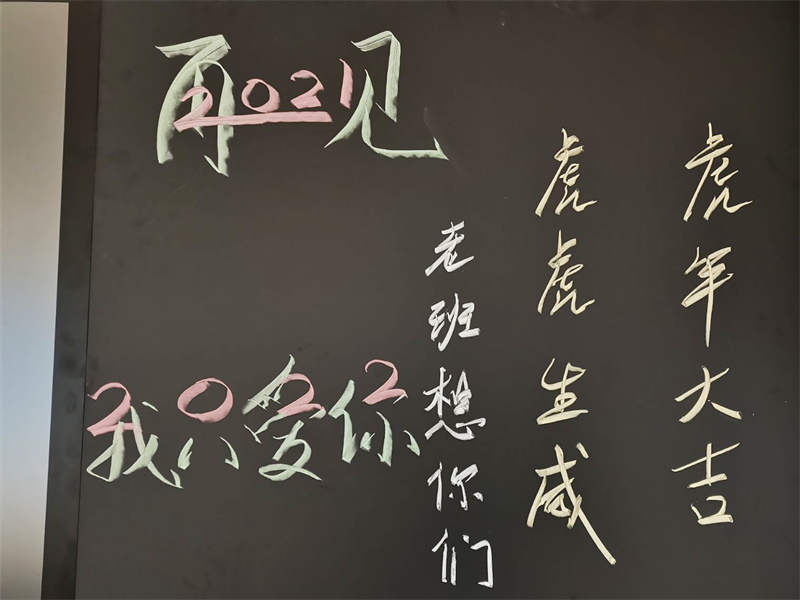 再2021见
2022
我只爱你
虎年大吉
虎虎生威
老班想你们